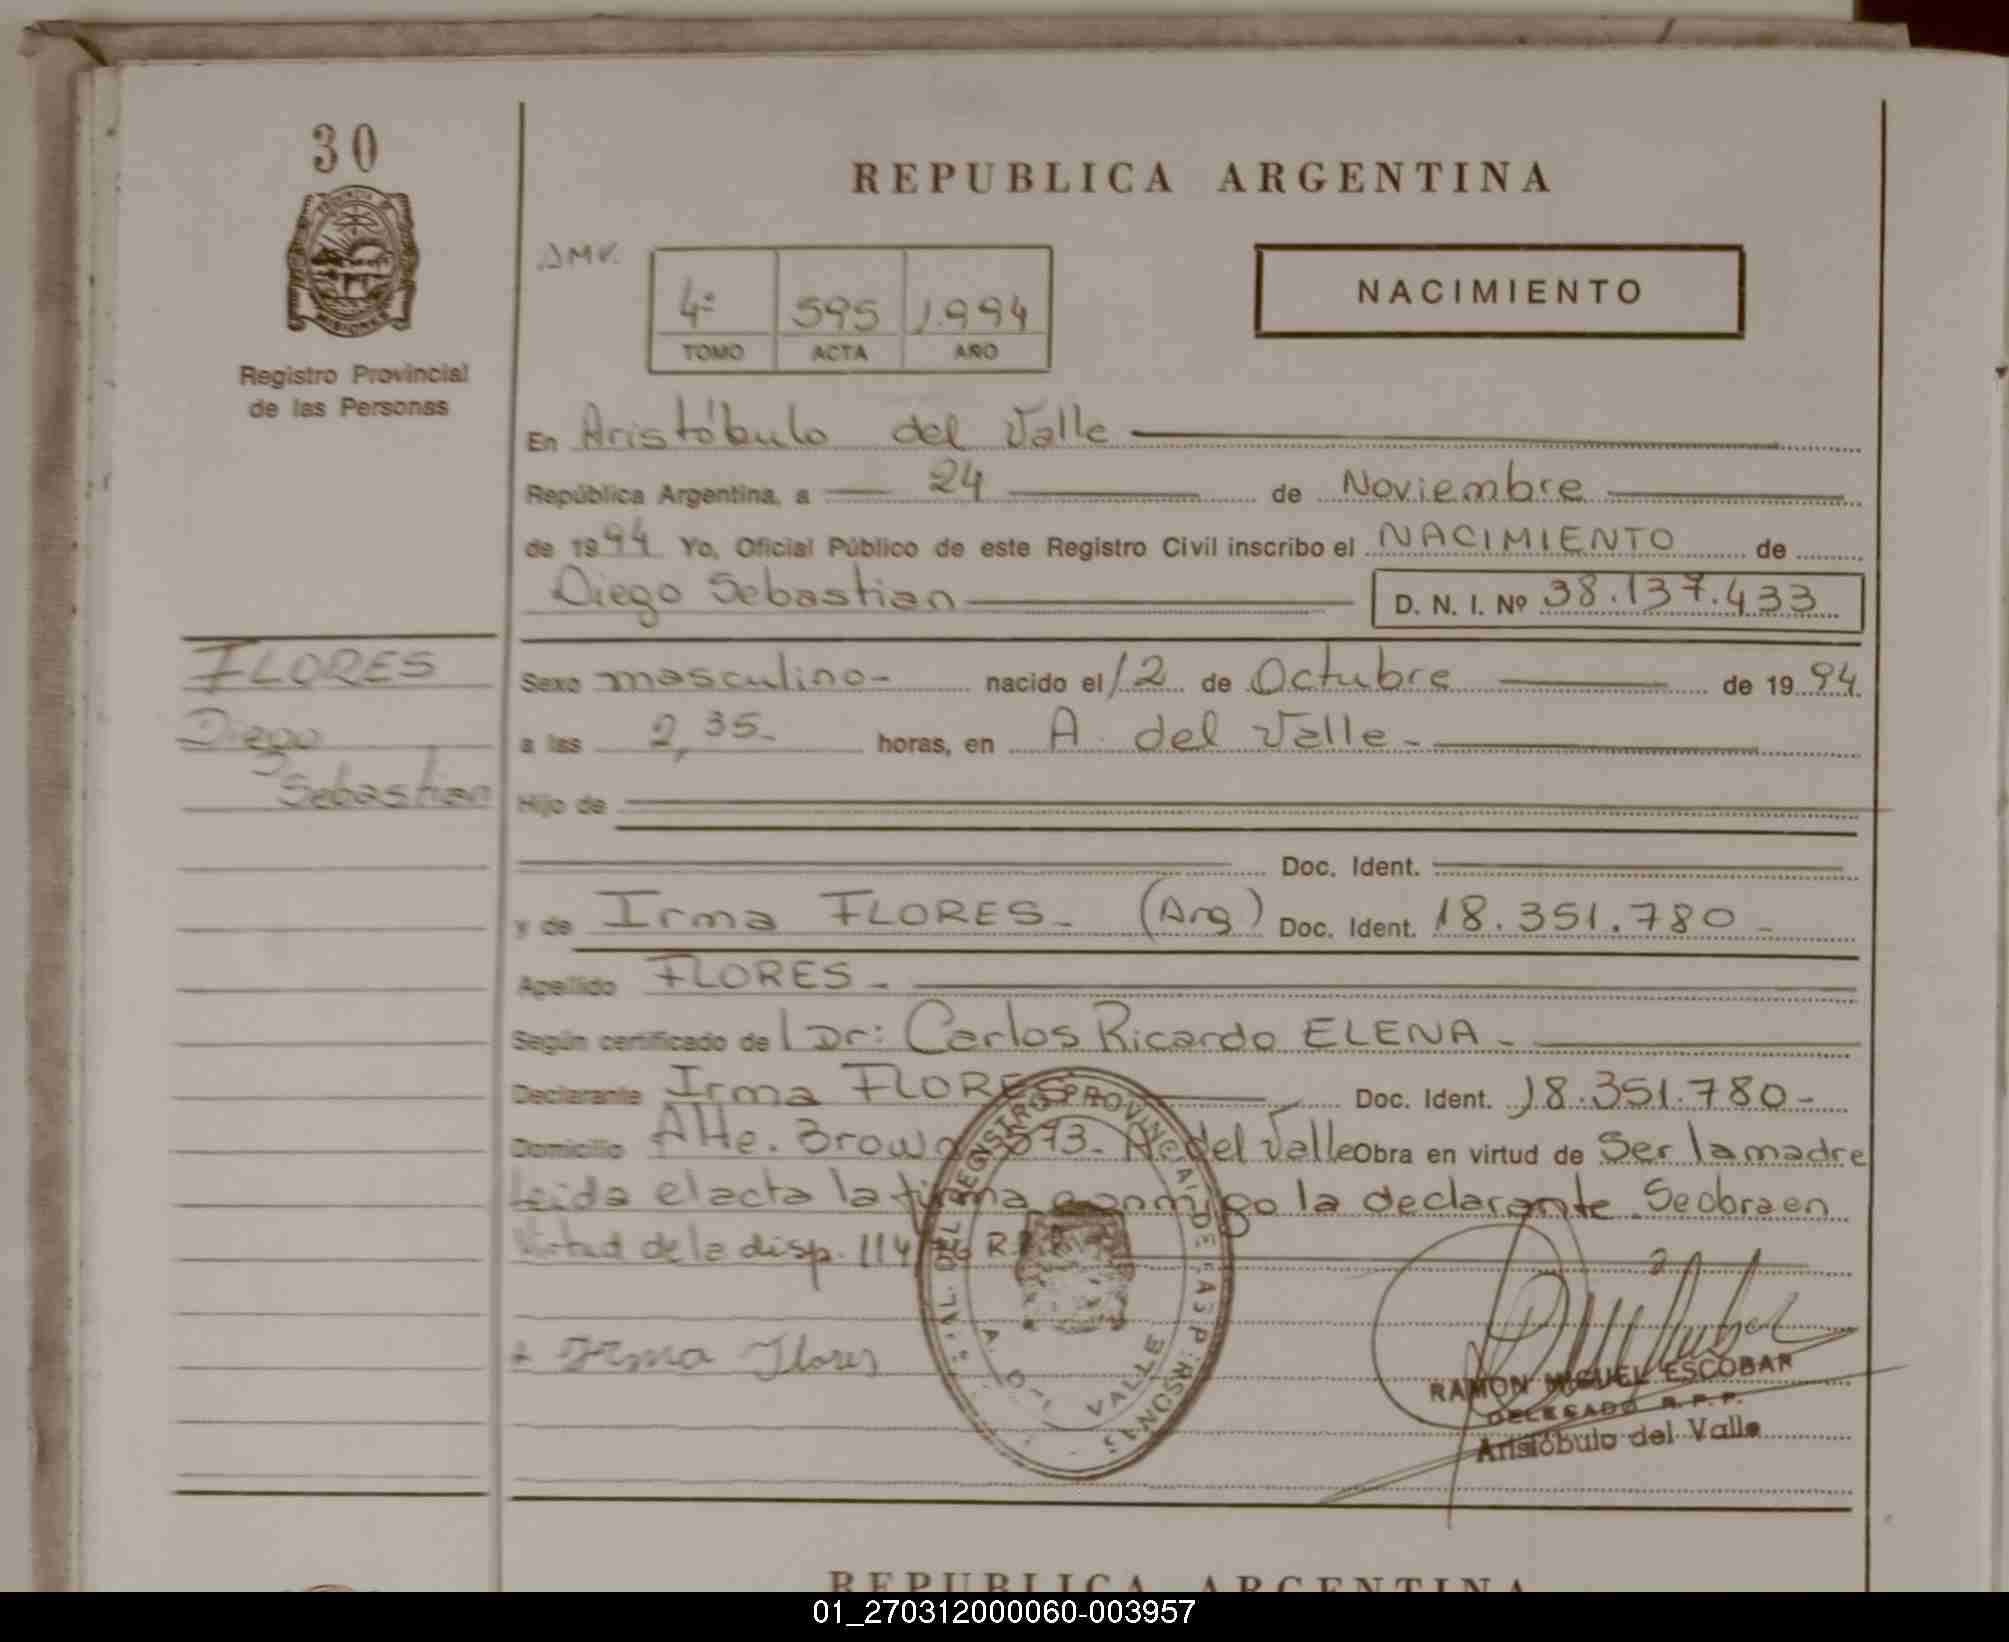 30
REPUBLICA ARGENTINA
NACIMIENTO
4º 595 1.994
TOMO ACTA AÑO
Registro Provincial
de las Personas
En Aristóbulo del Valle
República Argentina, a 24 de Noviembre
de 1994 Yo, Oficial Público de este Registro Civil inscribo el NACIMIENTO de
Diego Sebastian D. N. I. Nº 38.137.433
FLORES
Diego
Sebastian
Sexo masculino- nacido el 12 de Octubre de 1994
a las 2,35- horas, en A. del Valle-
Hijo de
Doc. Ident.
y de Irma FLORES- (Arg) Doc. Ident. 18.351.780-
Apellido FLORES-
Según certificado del Dr: Carlos Ricardo ELENA-
Declarante Irma FLORES Doc. Ident. 18.351.780-
Domicilio Alte. Brown 573- A. del Valle Obra en virtud de Ser la madre
Leida el acta la firma conmigo la declarante. Se obra en
Virtud de la disp. 114
Irma Flores
REGISTRO PROVINCIAL DE LAS PERSONAS
A. DEL VALLE
RAMON MIGUEL ESCOBAR
DELEGADO R.P.P.
Aristóbulo del Valle
REPUBLICA ARGENTINA
01_270312000060-003957